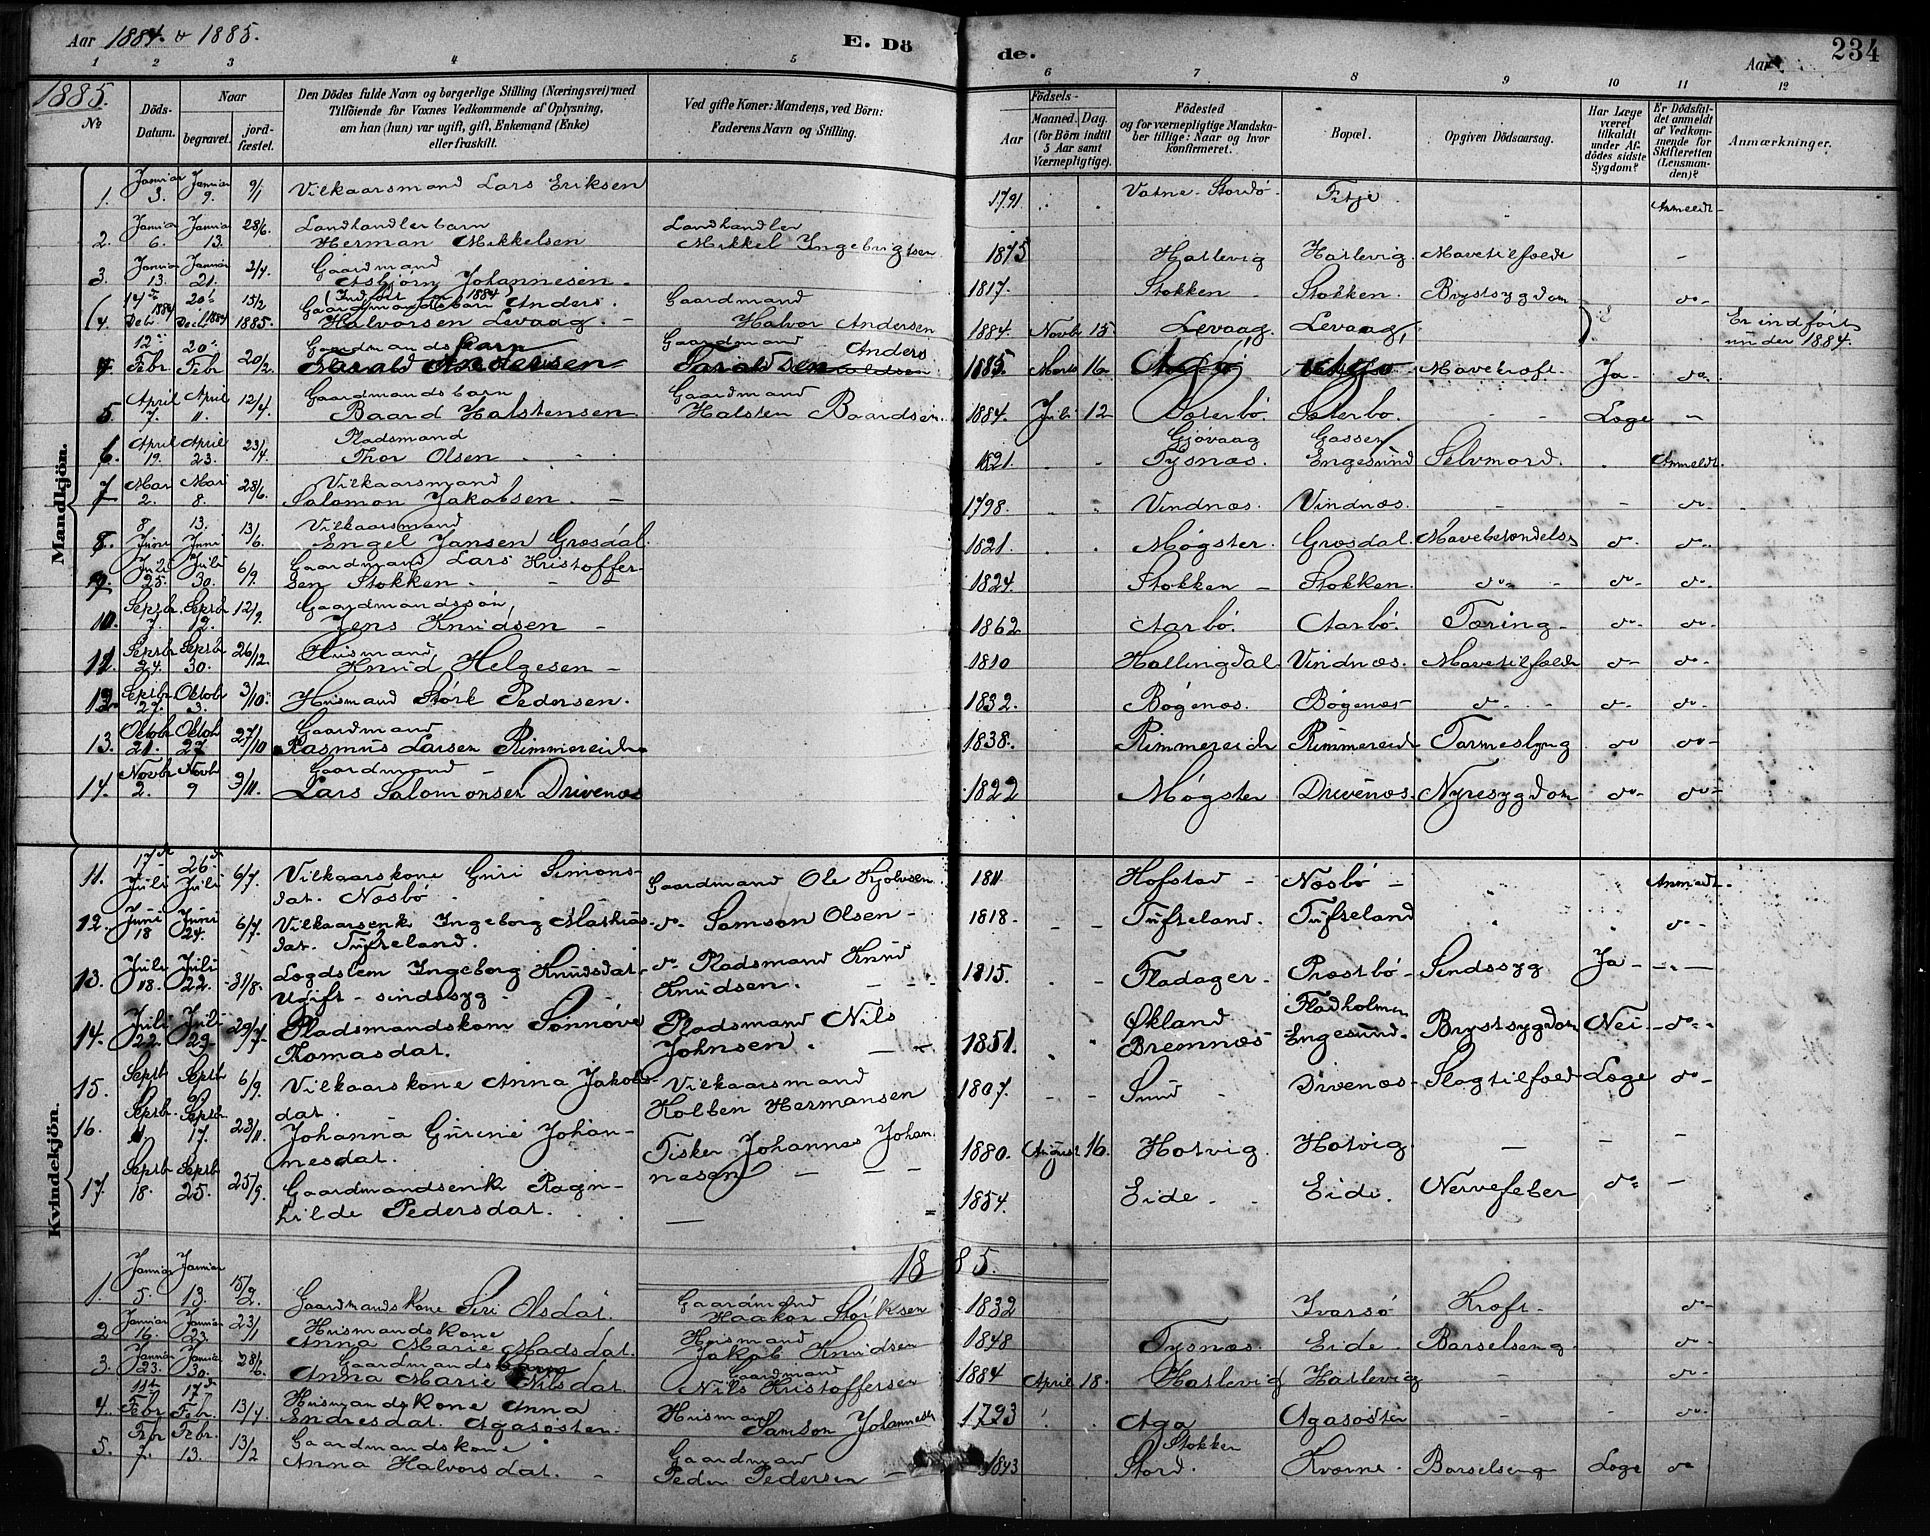 Aar 1884 & 1885.
E. Dö
de.
Aar
234
1 2 3 4 5 6 7 8 9 10 11 12
1885.
No
Döds-Datum.
Naar
begravet.
jord-fæstet.
Den Dödes fulde Navn og borgerlige Stilling (Næringsvei) med
Tilföiende for Voxnes Vedkommende af Oplysning,
om han (hun) var ugift, gift, Enkemand (Enke)
eller fraskilt.
Ved gifte Koner: Mandens, ved Börn:
Faderens Navn og Stilling.
Födsels-
Aar
Maaned. Dag.
(for Börn indtil
5 Aar samt
Værnepligtige).
Födested
og for værnepligtige Mandska-
ber tillige: Naar og hvor
konfirmeret.
Bopæl.
Opgiven Dödsaarsag.
Har Læge
været
tilkaldt
under Af-
dödes sidste
Sygdom?
Er Dödsfal-
det anmeldt
af Vedkom-
mende for
Skifteretten
(Lensman-
den)?
Anmærkninger.
Mandkjön.
1. Januar 3. Januar 9. 9/1 Vilkaarsmand Lars Eriksen 1791 Vatne Stordö Fitje Anmeldt
2. Januar 6. Januar 13. 28/6. Landhandlerbarn Landhandler
Herman Mikkelsen Mikkel Ingebrigtsen 1875 Hatlevig Hatlevig Mavetilfælde -
3. Januar 13. Januar 21. 2/4. Gaardmand
Asbjörn Johannesen 1817. Stokken Stokken. Brystsygdom do-
(Indfört for 1884
(4. 14de Debr. 1884 20de Decbr. 1884 15/2 1885. Gaardmandsbarn Anders Gaardmand
Halvorsen Levaag Halvor Andersen 1884. Novbr 15. Levaag. Levaag, Er indfört
under 1884.
4. 12te Febr 20de Febr 20/2. Gaardmandsbarn Gaardmand Anders
Tarald Andersen Taraldsen 1885. Marts 16 Mavekræft Ja do-
5 April 7. April 11. 12/4. Gaardmandsbarn Gaardmand
Baard Halstensen Halsten Baardsen 1884. Juli 12 Sæterbö. Sæterbö. - - Læge -
6. April 19. April 23. 23/4. Pladsmand Gjövaag Gassen
Thor Olsen 1821. Tysnæs. Engesund Selvmord. Anmeldt
7 Mai 2. Mai 8. 28/6. Vilkaarsmand
Salomon Jakobsen. 1798. Vindnæs. Vindnæs. - - do-
8. 8 Juni 13. Juni 13/6. Vilkaarsmand
Engel Jansen Græsdal. 1821. Møgster. Græsdal. Mavebetændelse do- do-
9. Juli 25. Juli 30. 6/9. Gaardmand Lars Kristoffer-
sen Stokken. 1824. Stokken Stokken. do- do- do-
10. Septbr 7. Septbr 12. 12/9. Gaardmandssön
Jens Knudsen 1862 Aarbö. Aarbö. Tæring do- do-
11. Septbr 24. Septbr 30. 26/12. Husmand
Knud Helgesen 1810 Hallingdal Vindnæs. Mavetilfælde do- do-
12. Septbr 27. Oktobr 3. 3/10. Husmand Störk Pedersen. 1832. Bögenæs. Bögenæs do- do- do-
13. Oktobr 21. Oktob 27 27/10 Gaardmand
Rasmus Larsen Rimmereide 1838. Rimmereide Rimmereide Tarmeslyng do do-
14. Novbr 2. Novb 9 9/11. Gaardmand
Lars Salomonsen Drivenæs 1822 Møgster Drivenæs. Nyresygdom do- do-
Kvindekjön.
11. 17de Juli 26de Juli 6/7. Vilkaarskone Guri Simons- Gaardmand Ole Kjolvsen 1811 Hofstad Næsbö Anmeldt.
dat. Næsbö
12. Juni 18 Juni 24. 6/7. Vilkaarsenke Ingeborg Mathias- do. Samson Olsen 1818. Tufteland. Tufteland do-
dat. Tufteland.
13. Juli 18. Juli 22. 31/8. Lægdslem Ingeborg Knudsdat. do Pladsmand Knud 1815. Fladager. Præstbö Sindssyg Ja -
Ugift - sindssyg Knudsen.
14. Juli 22 Juli 29. 29/7. Pladsmandskone Sönnöve Pladsmand Nils 1851. Økland Fladholmen Brystsygdom Nei do-
Tomasdat. Johnsen. Bremnæs Engesund.
15. Septb 1 Septbr 6/9. Vilkaarskone Anna Jakobs- Vilkaarsmand 1807. Sund Drivenæs Slagtilfælde Læge do-
dat. Kolben Hermansen
16. Septbr. 11 Septbr. 17. 23/11. Johanna Gurine Johan- Fisker Johannes Johan 1880. August 16. Hotvig. Hotvig. - - -
nesdat. nesen
17. Septbr 18. Septbr 25. 25/9. Gaardmandsenke Ragn- 1854. Eide. Eide. Nervefeber do- -
hilde Pedersdat.
1885.
1. Januar 5. Januar 13. 15/2. Gaardmandskone Siri Olsdat. Gaardmand 1832 Ivarsö Kræft. do-
Haakon Störksen
2 Januar 16. Januar 23. 23/1 Husmandskone Husmand 1848 Tysnæs. Eide. Barselseng. do-
Anna Marie Madsdat. Jakob Knudsen
3. Januar 23. Januar 30. 28/6. Gaardmandsbarn Gaardmand 1884 April 18. Hatlevig Hatlevig - do-
Anna Marie Nilsdat. Nils Kristoffersen
4. 11te Febr 17de Febr. 13/4 Husmandskone Anna Husmand 1793 Aga Agasösten - - do-
Endresdat. Agasösten. Samson Johannesen
5. Febr. 7 Febr. 13. 13/2 Gaardmandskone Gaardmand 1843 Stokken Kværne. Barselseng Læge do
Anna Halvorsdat. Peder Pedersen Stord.